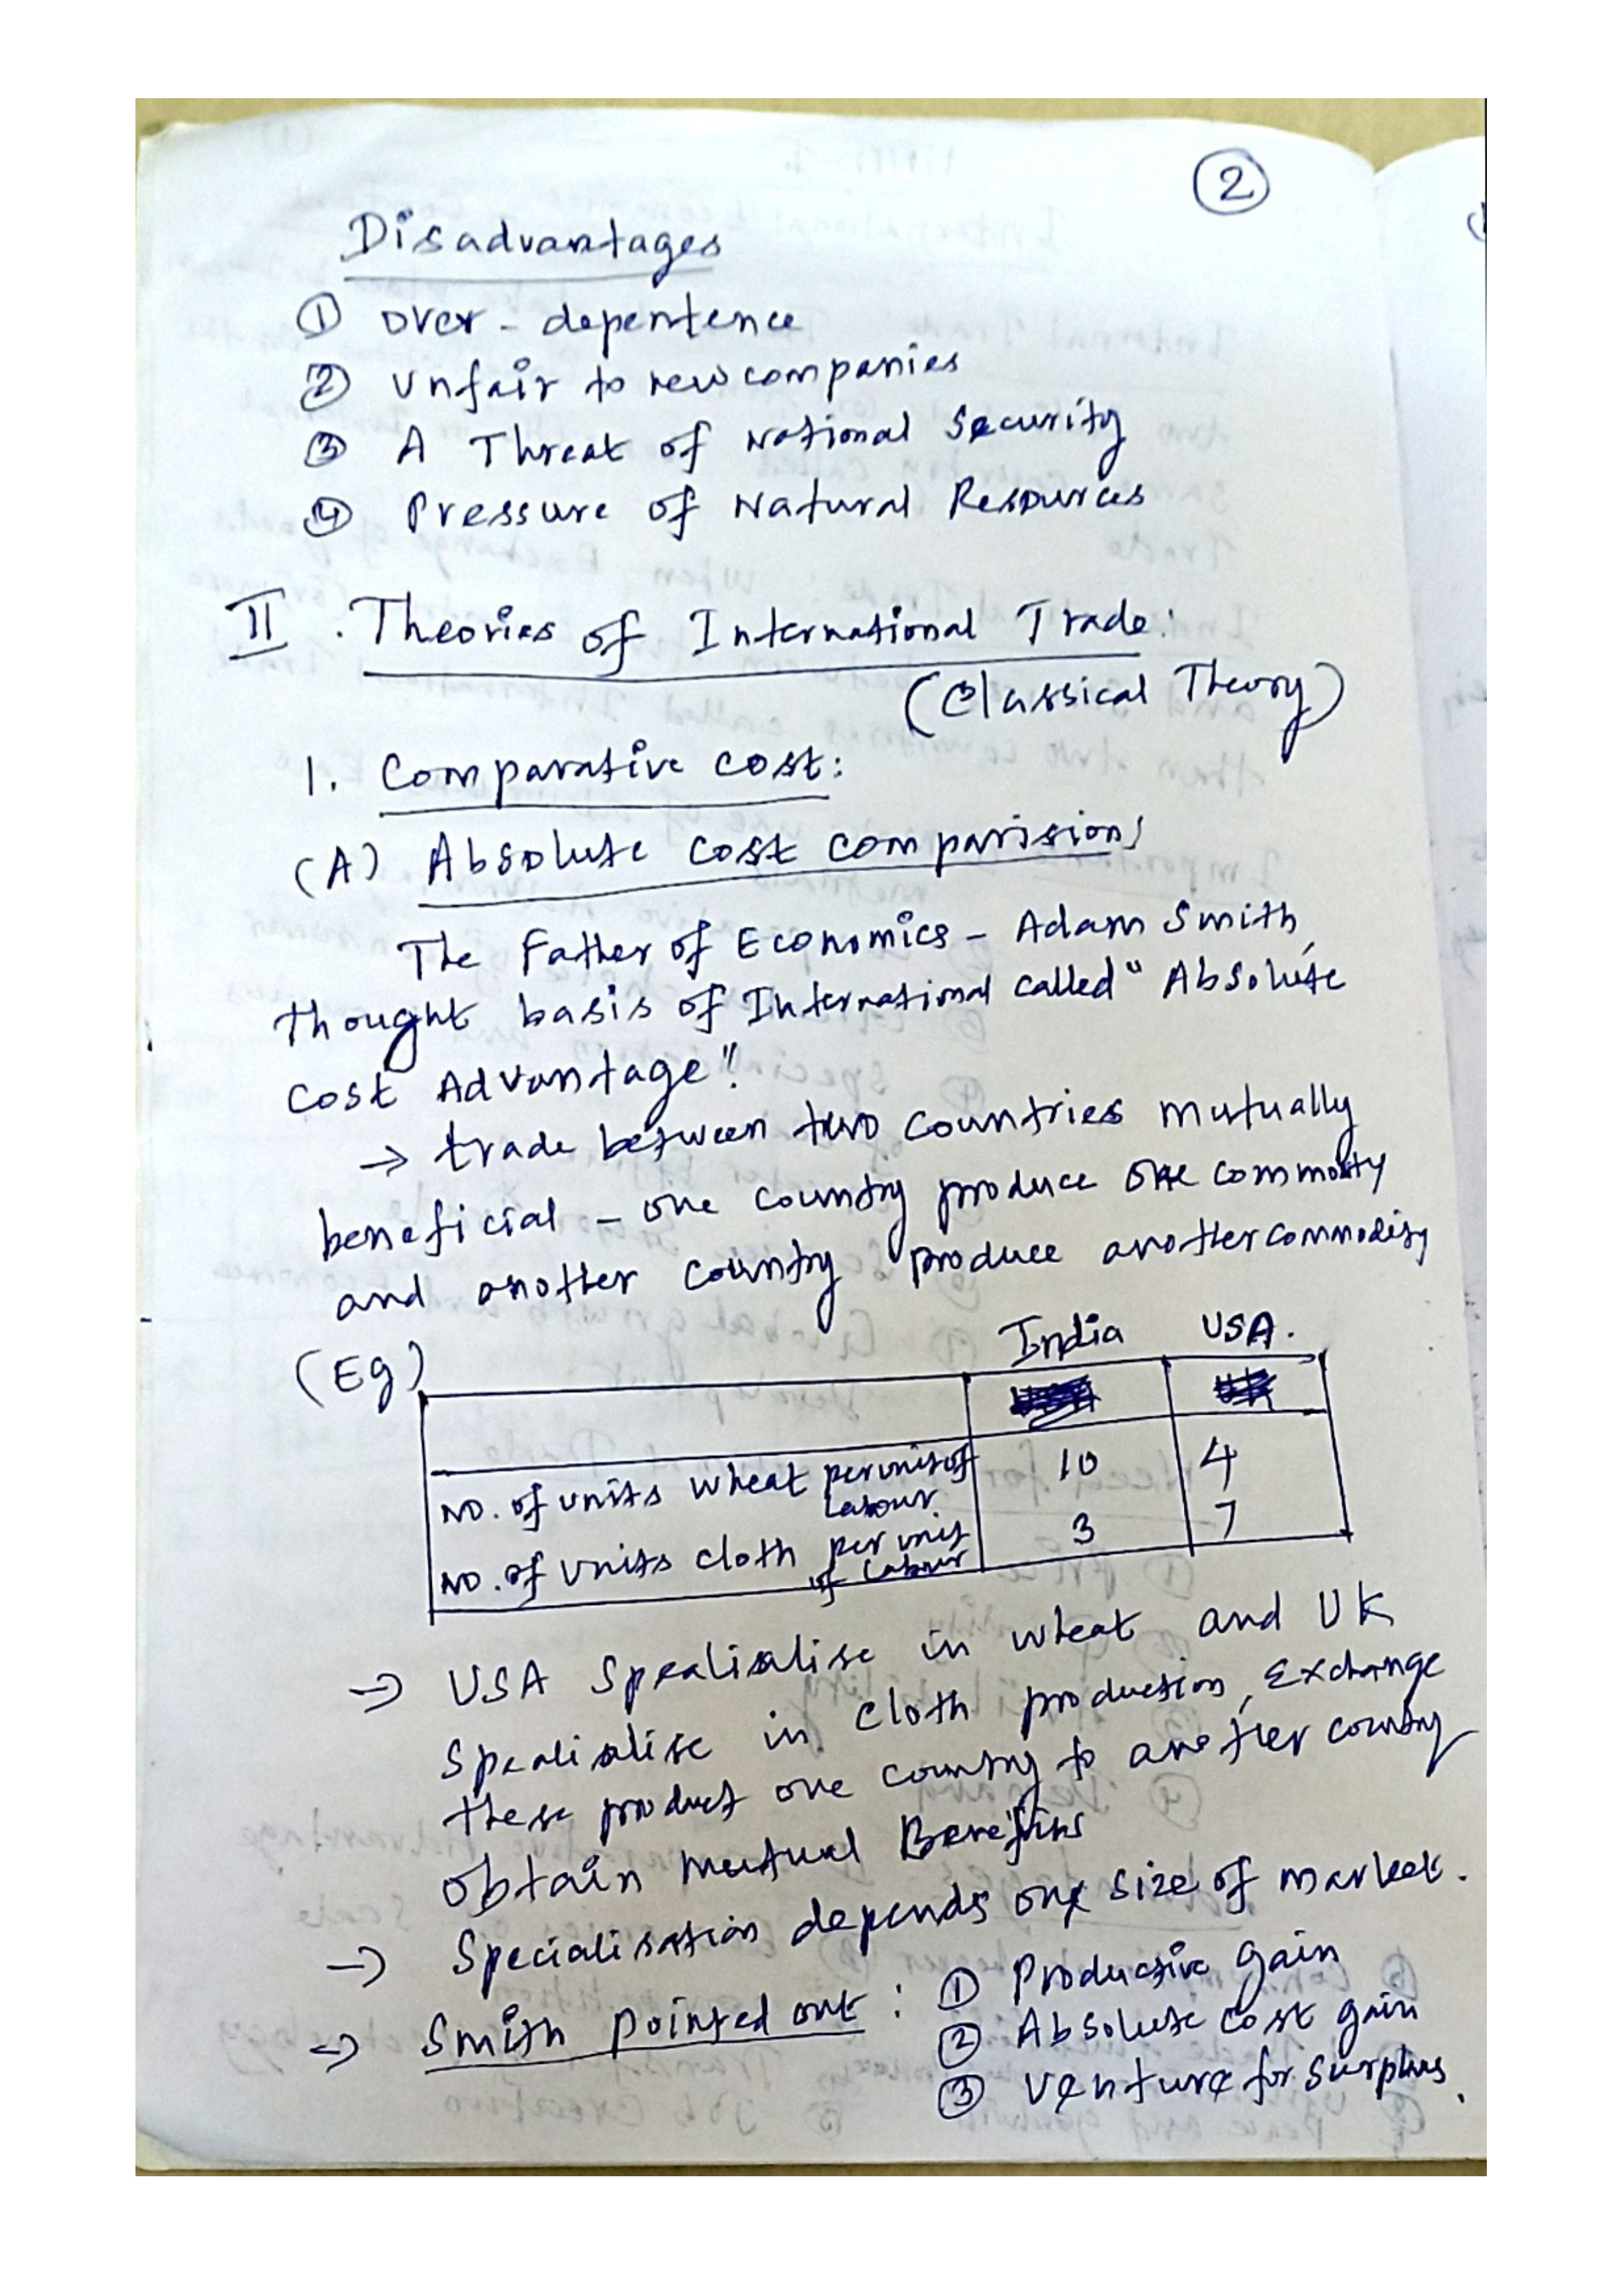 2
Disadvantages
① Over - dependence
② Unfair to new companies
③ A Threat of National Security
④ Pressure of Natural Resources
II . Theories of International Trade:
(Classical Theory)
1. Comparative cost:
(A) Absolute cost comparision;
The Father of Economics - Adam Smith,
thought basis of International called "Absolute
cost Advantage".
→ trade between two countries mutually
beneficial - one country produce one commodity
and another country produce another commodity
(Eg) India USA.
No. of units wheat per unit of Labour 10 4
No. of units cloth per unit of Labour 3 7
→ USA Spealialise in wheat and UK
Spealialise in cloth production, Exchange
these product one country to another country
obtain mutual Benefits
→ Specialisation depends one size of market.
→ Smith pointed out : ① Productive gain
② Absolute cost gain
③ Venture for surplus.